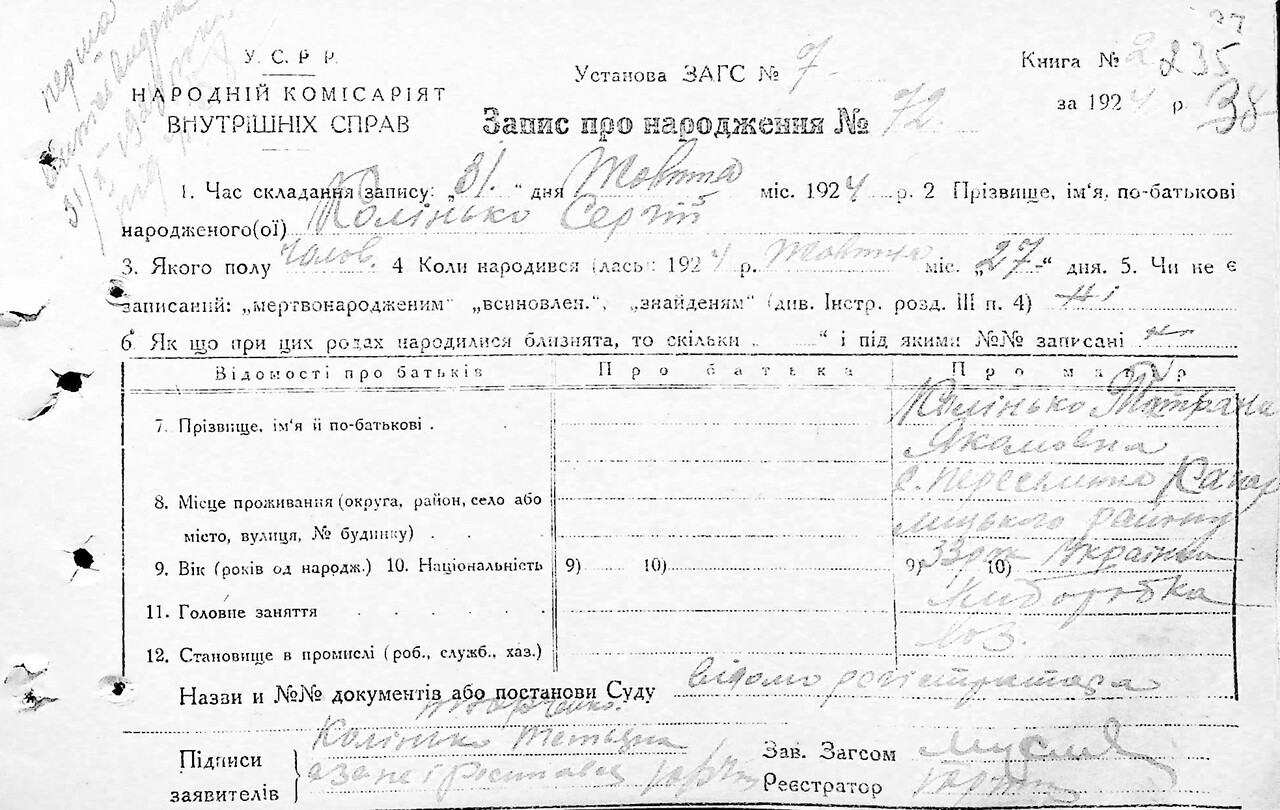 У. С. Р. Р.
НАРОДНІЙ КОМІСАРІЯТ
ВНУТРІШНІХ СПРАВ
Установа ЗАГС № 7.
Запис про народження № 72.
Книга № 2 235
за 1924 р. 38
перша
1. Час складання запису: „31.“ дня Жовтня міс. 1924 р. 2 Прізвище, ім‘я, по-батькові
народженого(ої) Колінько Сергій
3. Якого полу чолов. 4 Коли народився (лась): 1924 р. Жовтня міс. „27-“ дня. 5. Чи не є
записаний: „мертвонародженим“ „всиновлен.“, „знайденям“ (див. Інстр. розд. III п. 4) Ні
6. Як що при цих родах народилися близнята, то скільки „ “ і під якими №№ записані —
Відомості про батьків Про батька Про матір
7. Прізвище, ім‘я й по-батькові . Колінько Тетяна
Якомовна
8. Місце проживання (округа, район, село або с. Переселення Кагар
місто, вулиця, № будинку) . . лицького району
9. Вік (років од народж.) 10. Національність 9) 10) 9) 33 рок 10) Українка
11. Головне заняття . . . . . Хліборобка
12. Становище в промислі (роб., служб., хаз.) хоз.
Назви и №№ документів або постанови Суду відомо регістратора
Підписи
заявителів
Колінько Тетяна
Зав. Загсом
Реєстратор